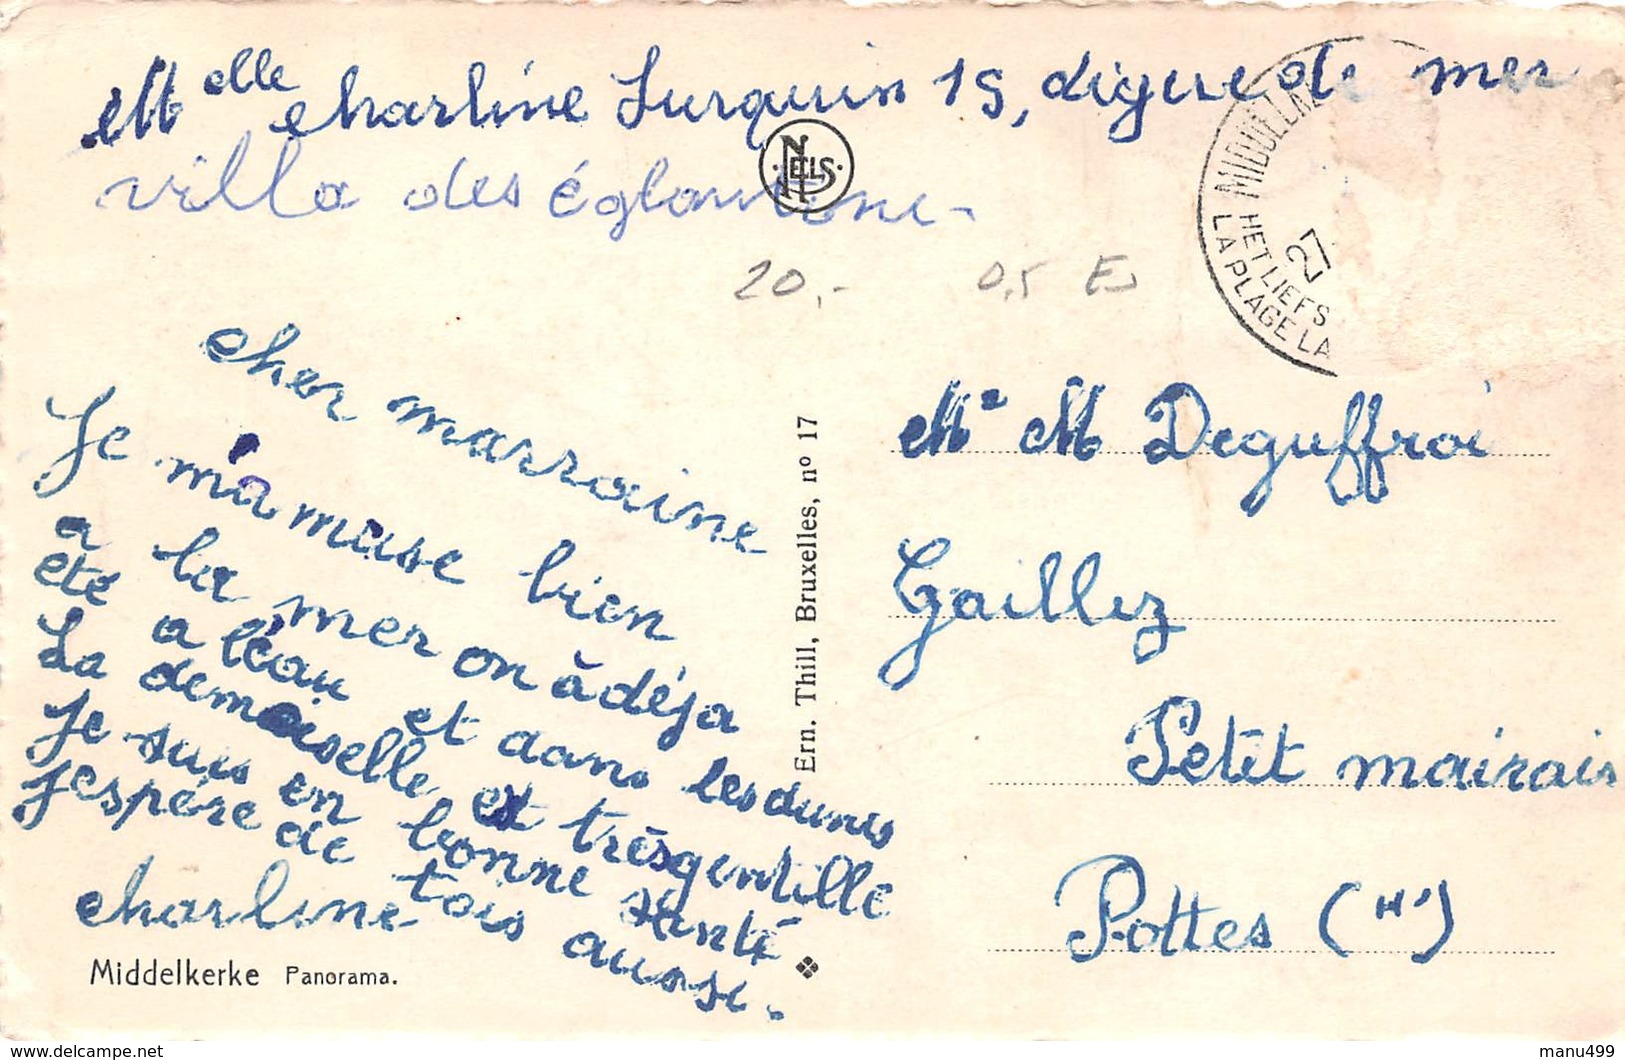 Melle charline Surquin 15, digue de mer
villa des églantine-
NELS
20,-
0,5 E
MIDDELKE
HET LIEFS
LA PLAGE LA
27
cher marraine
Je m'amuse bien
a la mer on à déja
été a l'éau et dans les dunes
La demoiselle est trés gentille
Je suis en bonne santé
J'espére de tois aussi.
charline
Middelkerke Panorama.
Ern. Thill, Bruxelles, nº 17
Me M Deguffroi
Gaillez
Petit mairais
Pottes (Ht)
https://www.delcampe.net
manu499